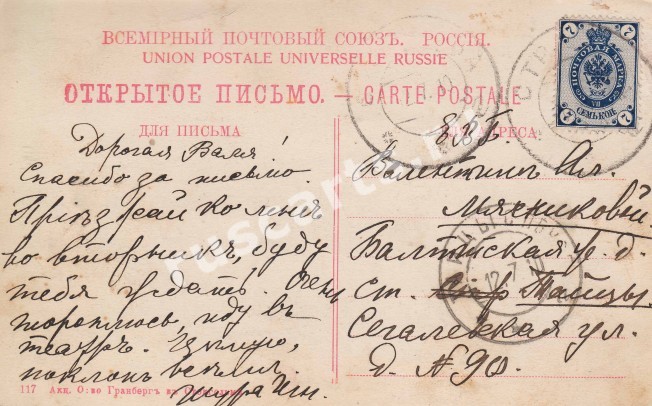 ВСЕМІРНЫЙ ПОЧТОВЫЙ СОЮЗЪ. РОССІЯ.
UNION POSTALE UNIVERSELLE RUSSIE
ОТКРЫТОЕ ПИСЬМО. — CARTE POSTALE
ДЛЯ ПИСЬМА
Дорогая Валя!
Спасибо за письмо
Пріѣзжай ко мнѣ
во вторникъ, буду
тебя ждать. Очень
тороплюсь, иду въ
театръ. Цѣлую,
поклонъ всѣмъ.
Шура
117 Акц. О-во Гранбергъ въ
АДРЕСА
Е.В.Б.
Валентинѣ Ал.
Мясниковой.
Балтійская ж. д.
ст. Тайцы.
Сегалевская ул.
д. № 90.
7 7
ПОЧТОВАЯ МАРКА
СЕМЬ КОП.
7 7
12.7
ruscarta.ru